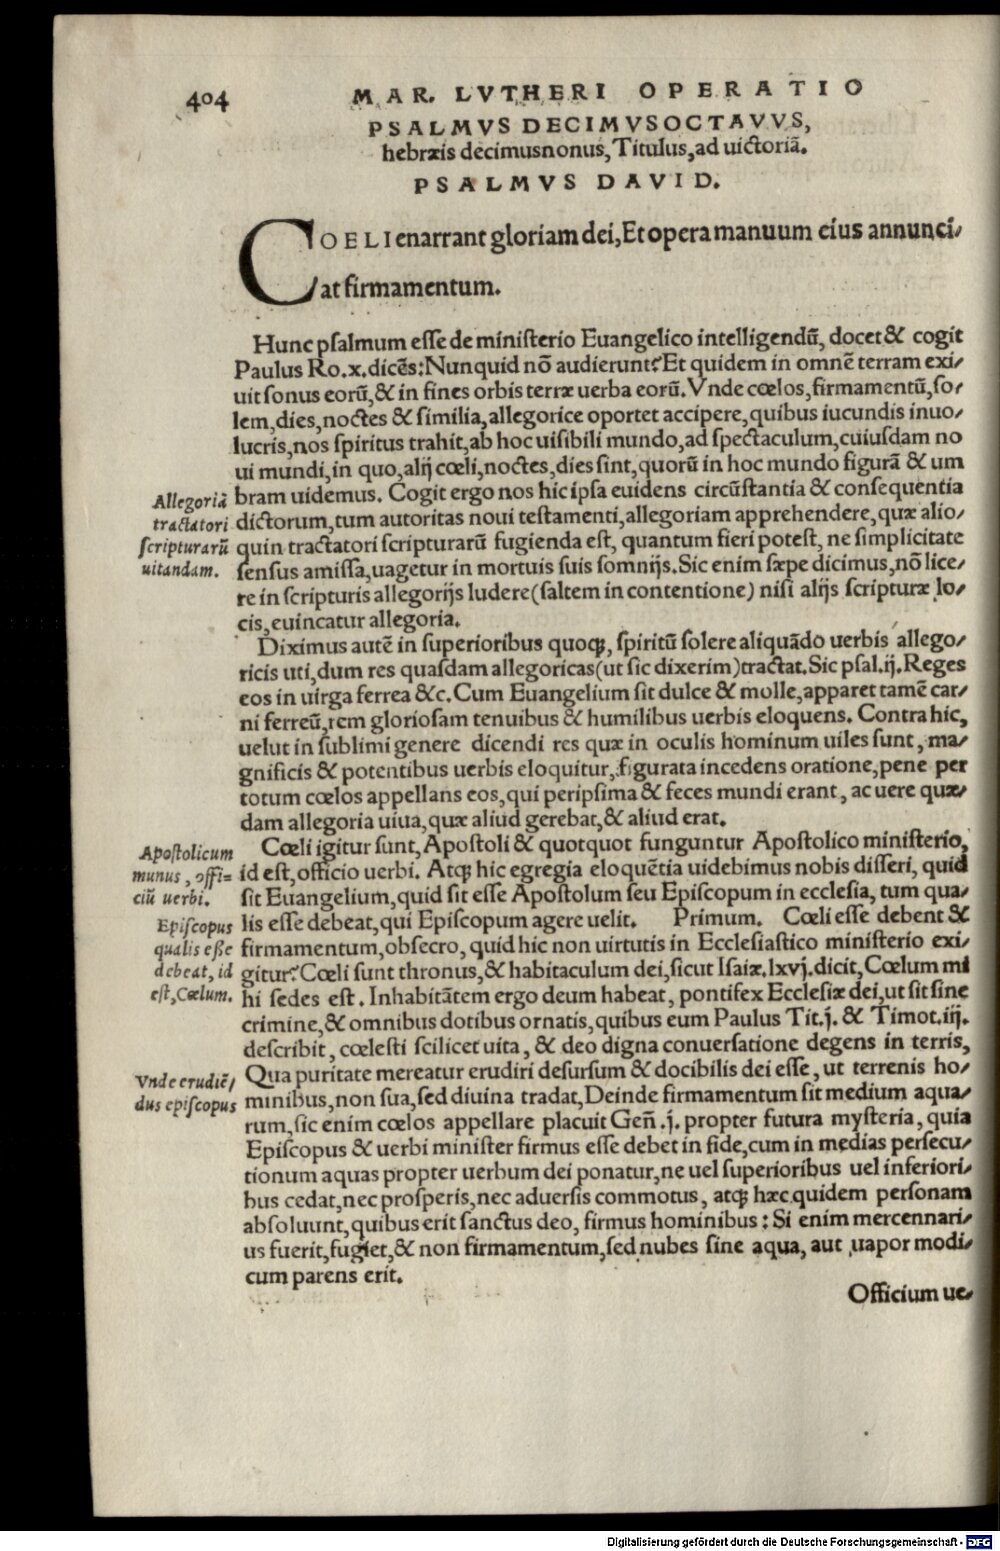 404
MAR. LVTHERI OPERATIO
PSALMVS DECIMVSOCTAVVS,
hebræis decimusnonus, Titulus, ad uictoriã.
PSALMVS DAVID.
COELI enarrant gloriam dei, Et opera manuum eius annunci⸗
at firmamentum.
Hunc pſalmum eſſe de miniſterio Euangelico intelligendũ, docet & cogit
Paulus Ro.x.dicẽs: Nunquid nõ audierunt? Et quidem in omnẽ terram exi⸗
uit ſonus eorũ, & in fines orbis terræ uerba eorũ. Vnde cœlos, firmamentũ, ſo⸗
lem, dies, noctes & ſimilia, allegorice oportet accipere, quibus iucundis inuo⸗
lucris, nos ſpiritus trahit, ab hoc uiſibili mundo, ad ſpectaculum, cuiuſdam no
ui mundi, in quo, alij cœli, noctes, dies ſint, quorũ in hoc mundo figurã & um
Allegoriã
tractatori
ſcripturarũ
uitandam.
bram uidemus. Cogit ergo nos hic ipſa euidens circũſtantia & conſequentia
dictorum, tum autoritas noui teſtamenti, allegoriam apprehendere, quæ alio⸗
quin tractatori ſcripturarũ fugienda eſt, quantum fieri poteſt, ne ſimplicitate
ſenſus amiſſa, uagetur in mortuis ſuis ſomnijs. Sic enim ſæpe dicimus, nõ lice⸗
re in ſcripturis allegorijs ludere (ſaltem in contentione) niſi alijs ſcripturæ lo⸗
cis, euincatur allegoria.
Diximus autẽ in ſuperioribus quoqꝫ, ſpiritũ ſolere aliquãdo uerbis allego⸗
ricis uti, dum res quaſdam allegoricas (ut ſic dixerim) tractat. Sic pſal.ij. Reges
eos in uirga ferrea &c. Cum Euangelium ſit dulce & molle, apparet tamẽ car⸗
ni ferreũ, rem glorioſam tenuibus & humilibus uerbis eloquens. Contra hic,
uelut in ſublimi genere dicendi res quæ in oculis hominum uiles ſunt, ma⸗
gnificis & potentibus uerbis eloquitur, figurata incedens oratione, pene per
totum cœlos appellans eos, qui peripſima & feces mundi erant, ac uere quæ⸗
dam allegoria uiua, quæ aliud gerebat, & aliud erat.
Apoſtolicum
munus, offi=
ciũ uerbi.
Cœli igitur ſunt, Apoſtoli & quotquot funguntur Apoſtolico miniſterio,
id eſt, officio uerbi. Atqꝫ hic egregia eloquẽtia uidebimus nobis diſſeri, quid
ſit Euangelium, quid ſit eſſe Apoſtolum ſeu Epiſcopum in eccleſia, tum qua⸗
Epiſcopus
qualis eße
debeat, id
eſt, Cœlum.
lis eſſe debeat, qui Epiſcopum agere uelit. Primum. Cœli eſſe debent &
firmamentum, obſecro, quid hic non uirtutis in Eccleſiaſtico miniſterio exi⸗
gitur? Cœli ſunt thronus, & habitaculum dei, ſicut Iſaiæ.lxvj.dicit, Cœlum mi
hi ſedes eſt. Inhabitãtem ergo deum habeat, pontifex Eccleſiæ dei, ut ſit ſine
crimine, & omnibus dotibus ornatis, quibus eum Paulus Tit.j. & Timot.iij.
deſcribit, cœleſti ſcilicet uita, & deo digna conuerſatione degens in terris,
Vnde erudiẽ⸗
dus epiſcopus
Qua puritate mereatur erudiri deſurſum & docibilis dei eſſe, ut terrenis ho⸗
minibus, non ſua, ſed diuina tradat, Deinde firmamentum ſit medium aqua⸗
rum, ſic enim cœlos appellare placuit Geñ.j. propter futura myſteria, quia
Epiſcopus & uerbi miniſter firmus eſſe debet in fide, cum in medias perſecu⸗
tionum aquas propter uerbum dei ponatur, ne uel ſuperioribus uel inferiori⸗
bus cedat, nec proſperis, nec aduerſis commotus, atqꝫ hæc quidem perſonam
abſoluunt, quibus erit ſanctus deo, firmus hominibus: Si enim mercennari⸗
us fuerit, fugiet, & non firmamentum, ſed nubes ſine aqua, aut uapor modi⸗
cum parens erit.
Officium ue⸗
Digitalisierung gefördert durch die Deutsche Forschungsgemeinschaft - DFG